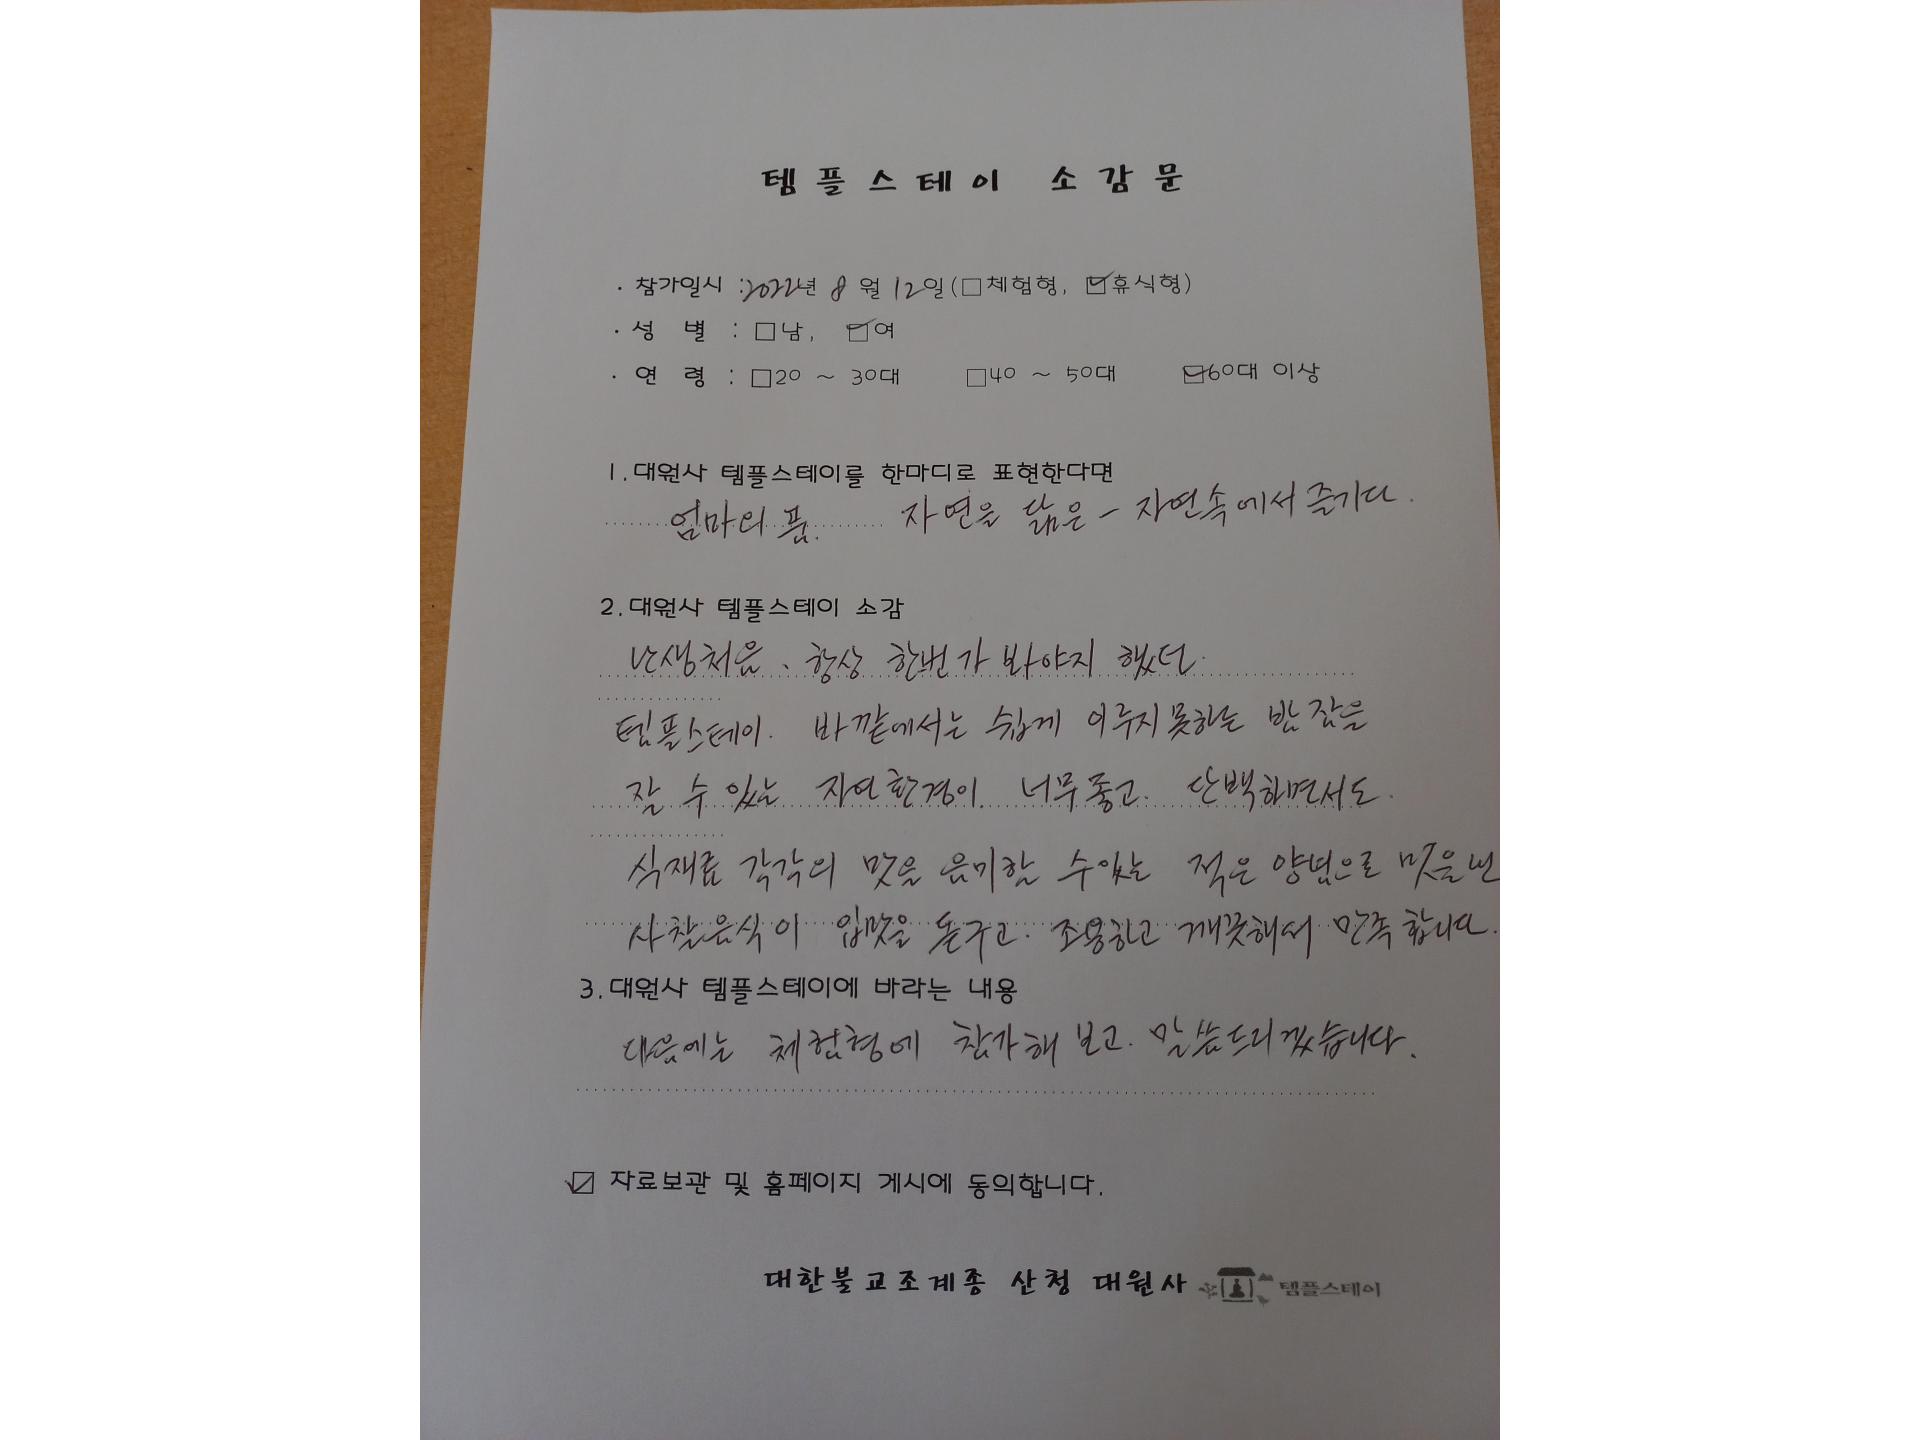 템플스테이 소감문
· 참가일시 : 2022년 8월 12일(□체험형, ☑휴식형)
· 성 별 : □남, ☑여
· 연 령 : □20 ~ 30대 □40 ~ 50대 ☑60대 이상
1.대원사 템플스테이를 한마디로 표현한다면
엄마의 품. 자연을 닮은 - 자연속에서 즐기다.
2.대원사 템플스테이 소감
난생처음. 항상 한번 가 봐야지 했던.
템플스테이. 바깥에서는 쉽게 이루지 못하는 밤잠을
잘 수 있는 자연환경이 너무 좋고. 단백하면서도.
식재료 각각의 맛을 음미할 수 있는 적은 양념으로 맛을 낸
사찰음식이 입맛을 돋구고. 조용하고 깨끗해서 만족합니다.
3.대원사 템플스테이에 바라는 내용
다음에는 체험형에 참가해 보고. 말씀드리겠습니다.
☑ 자료보관 및 홈페이지 게시에 동의합니다.
대한불교조계종 산청 대원사 템플스테이